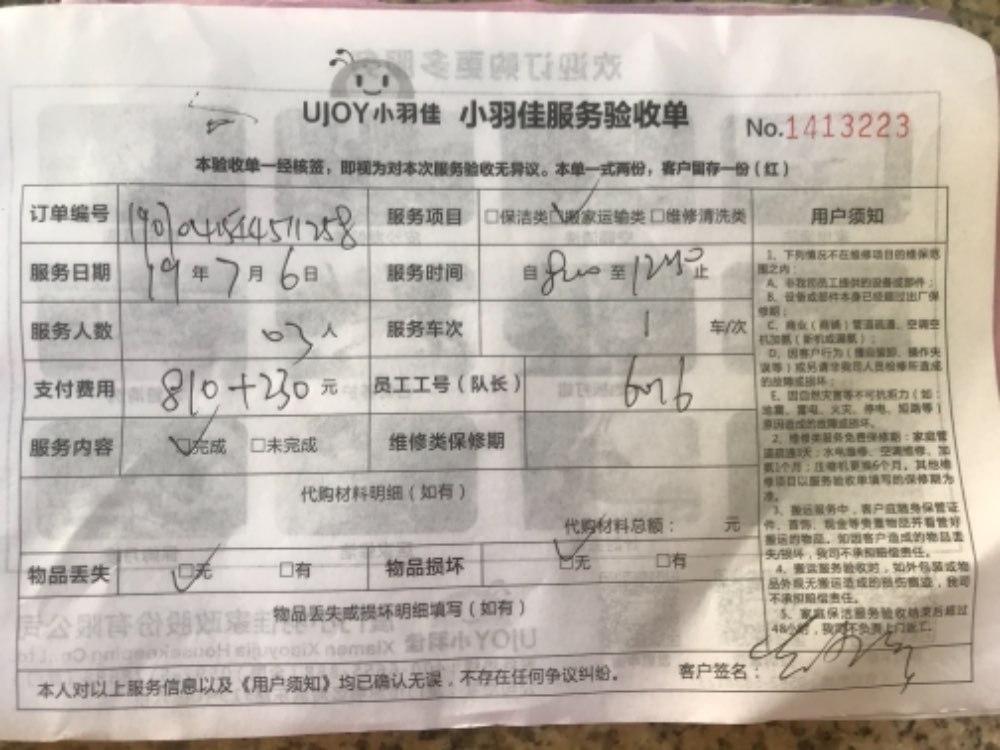 UJOY小羽佳 小羽佳服务验收单
No.1413223
本验收单一经核签，即视为对本次服务验收无异议。本单一式两份，客户留存一份（红）
订单编号 服务项目 □保洁类 □搬家运输类 □维修清洗类 用户须知
服务日期 19年7月6日 服务时间 自 至 止
服务人数 03人 服务车次 1 车/次
支付费用 810+230元 员工工号（队长）
服务内容 □完成 □未完成 维修类保修期
代购材料明细（如有）
代购材料总额： 元
物品丢失 □无 □有 物品损坏 □无 □有
物品丢失或损坏明细填写（如有）
本人对以上服务信息以及《用户须知》均已确认无误，不存在任何争议纠纷。 客户签名：
1、下列情况不在维修项目的维保范
围之内：
A、非我司员工提供的设备或部件；
B、设备或部件本身已经超过出厂保
修期；
C、商业（商铺）管道疏通、空调空
机加氨（新机或漏氨）；
D、因客户行为（擅自装卸、操作失
误等）或另请非我司人员检修所造成
的故障或损坏；
E、因自然灾害等不可抗拒力（如：
地震、雷电、火灾、停电、短路等）
原因造成的故障或损坏。
2、维修类服务免费保修期：家庭管
道疏通3天；水电维修、空调维修、加
氨1个月；压缩机更换6个月。其他维
修项目以服务验收单填写的保修期为
准。
3、搬运服务中，客户应随身保管证
件、首饰、现金等贵重物品并看管好
搬运的物品。如因客户造成的物品丢
失/损坏，我司不承担赔偿责任。
4、搬运服务验收时，如外包装或物
品外观无搬运造成的损伤痕迹，我司
不承担赔偿责任。
5、家庭保洁服务验收结束后超过
48小时，我司不负责上门返工。